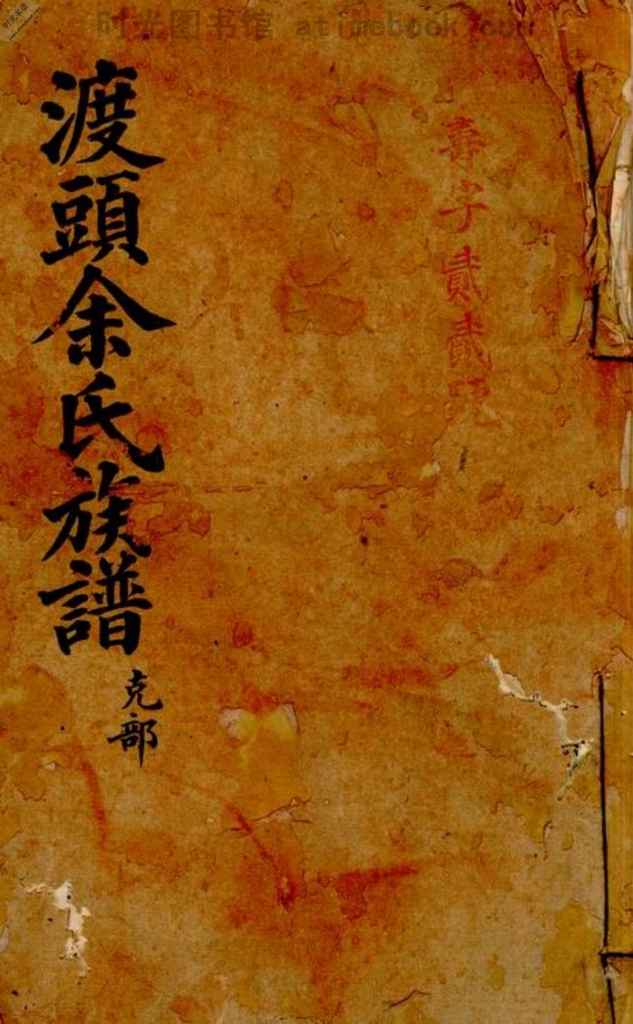 时光图书馆 atimebook.com
壽字貳貳號
渡頭余氏族譜
克部